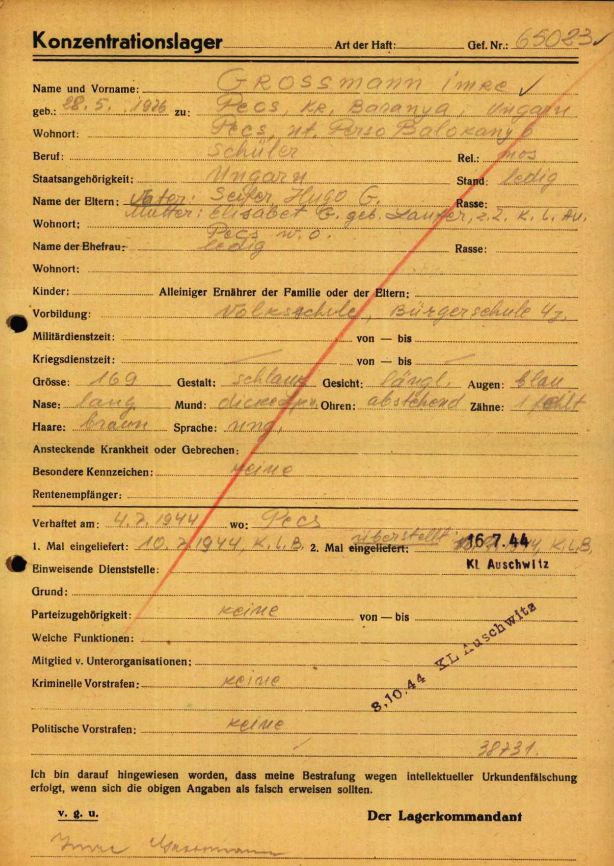 Konzentrationslager Art der Haft: Gef. Nr.: 65023
Name und Vorname: GROSSMANN Imre
geb.: 28.5. 1926 zu: Pecs, Kr. Baranya, Ungarn
Wohnort: Pecs,
Beruf: Schüler Rel.: mos
Staatsangehörigkeit: Ungarn Stand: ledig
Name der Eltern: Vater: Hugo G. Rasse:
Mutter: Elisabet G. geb. z.Z. K.L. Au.
Wohnort: Pecs w.o.
Name der Ehefrau: ledig Rasse:
Wohnort:
Kinder: Alleiniger Ernährer der Familie oder der Eltern:
Vorbildung: Volksschule, Bürgerschule 4j.
Militärdienstzeit: von — bis
Kriegsdienstzeit: von — bis
Grösse: 169 Gestalt: schlank Gesicht: längl. Augen: blau
Nase: lang Mund: Ohren: abstehend Zähne: 1 fehlt
Haare: braun Sprache: ung.
Ansteckende Krankheit oder Gebrechen:
Besondere Kennzeichen: keine
Rentenempfänger:
Verhaftet am: 4.7.1944 wo: Pecs
überstellt:
1. Mal eingeliefert: 10.7.1944, K.L.B. 2. Mal eingeliefert: 16.7.44 K.L.B.
Einweisende Dienststelle: KL Auschwitz
Grund:
Parteizugehörigkeit: keine von — bis
Welche Funktionen:
Mitglied v. Unterorganisationen:
Kriminelle Vorstrafen: keine
8.10.44 KL Auschwitz
Politische Vorstrafen: keine
38731.
Ich bin darauf hingewiesen worden, dass meine Bestrafung wegen intellektueller Urkundenfälschung
erfolgt, wenn sich die obigen Angaben als falsch erweisen sollten.
v. g. u. Der Lagerkommandant
Imre Grossmann